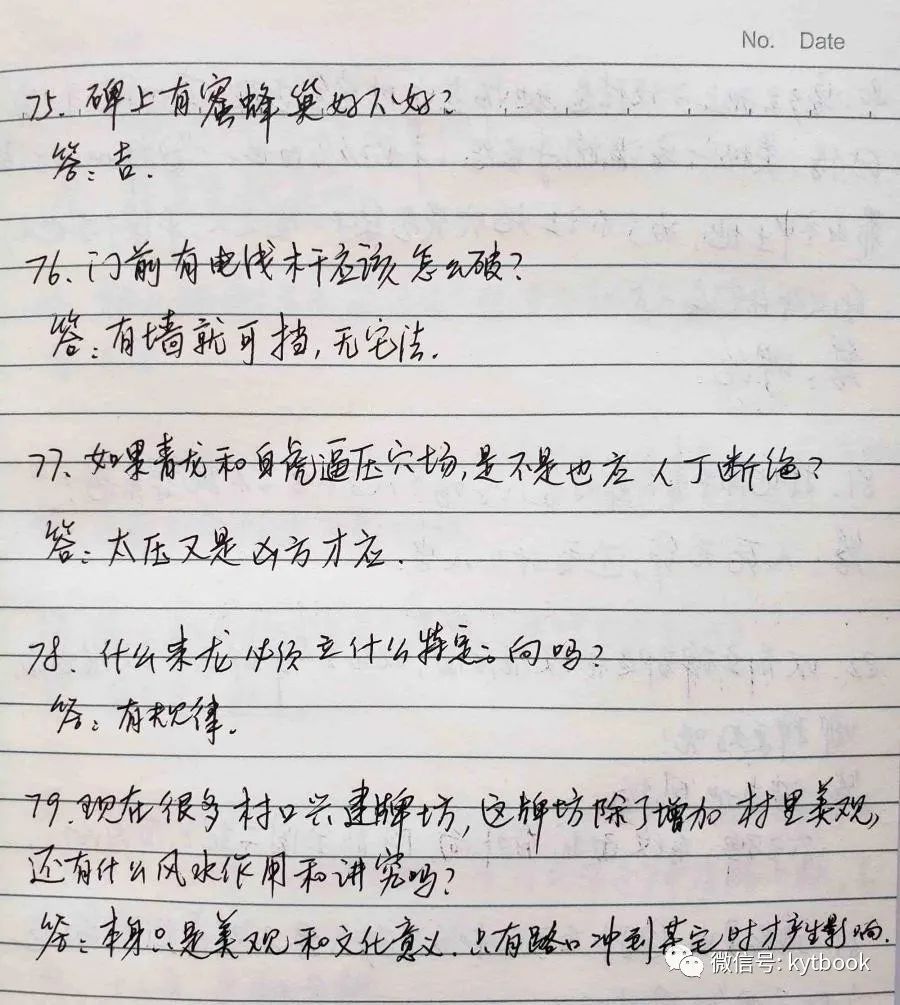 No. Date
75. 碑上有蜜蜂巢好不好?
答: 吉.
76. 门前有电线杆应该怎么破?
答: 有墙就可挡, 无它法.
77. 如果青龙和白虎逼压穴场, 是不是也应人丁断绝?
答: 太压又是凶方才应.
78. 什么来龙必须立什么特定向吗?
答: 有规律.
79. 现在很多村口兴建牌坊, 这牌坊除了增加村里美观,
还有什么风水作用和讲究吗?
答: 本身只是美观和文化意义. 只有路口冲到某宅时才产生影响.
微信号: kytbook